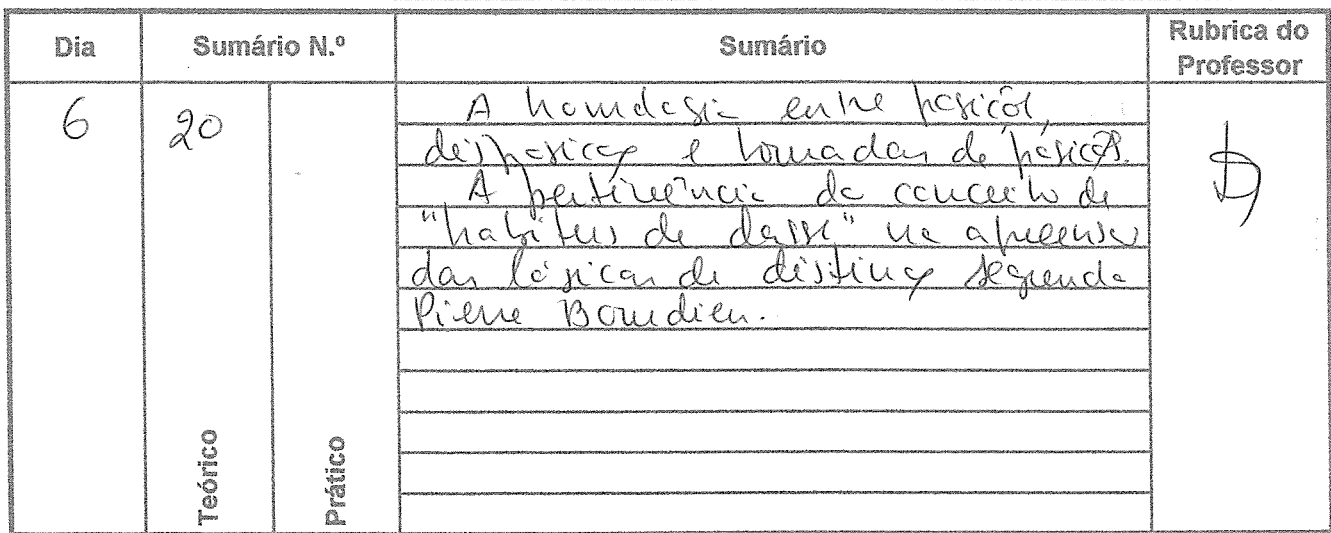 Dia Sumário N.º Sumário Rubrica do Professor
6 20 A homologia entre posições,
disposições e tomadas de posição.
A pertinência do conceito de
"habitus de classe" na apreensão
das lógicas de distinção segundo
Pierre Bourdieu.
Teórico Prático